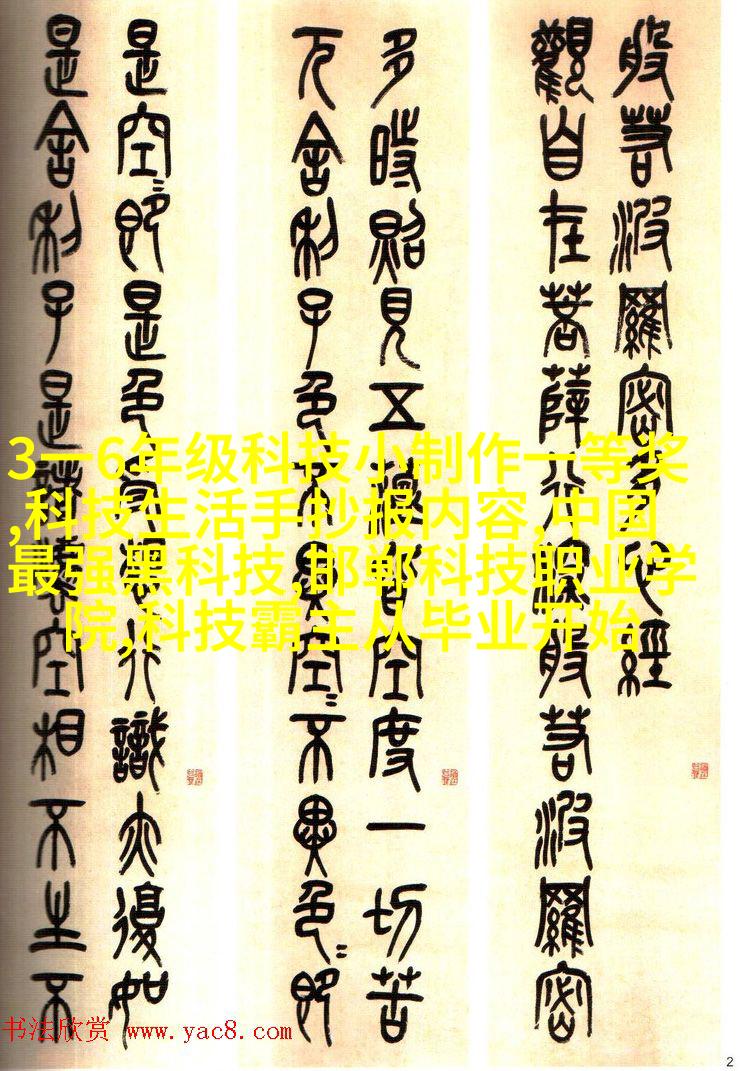 般若波羅密多心經
觀自在菩薩行深般若波羅密
多時照見五蘊皆空度一切苦
厄舍利子色不異空〻不異色〻即
是空〻即是色受想行識亦復如
是舍利子是諸法空相不生不
3一6年级科技小制作一等奖
,科技生活手抄报内容,中国
最强黑科技,邯郸科技职业学
院,科技霸主从毕业开始
书法欣赏 www.yac8.com
2